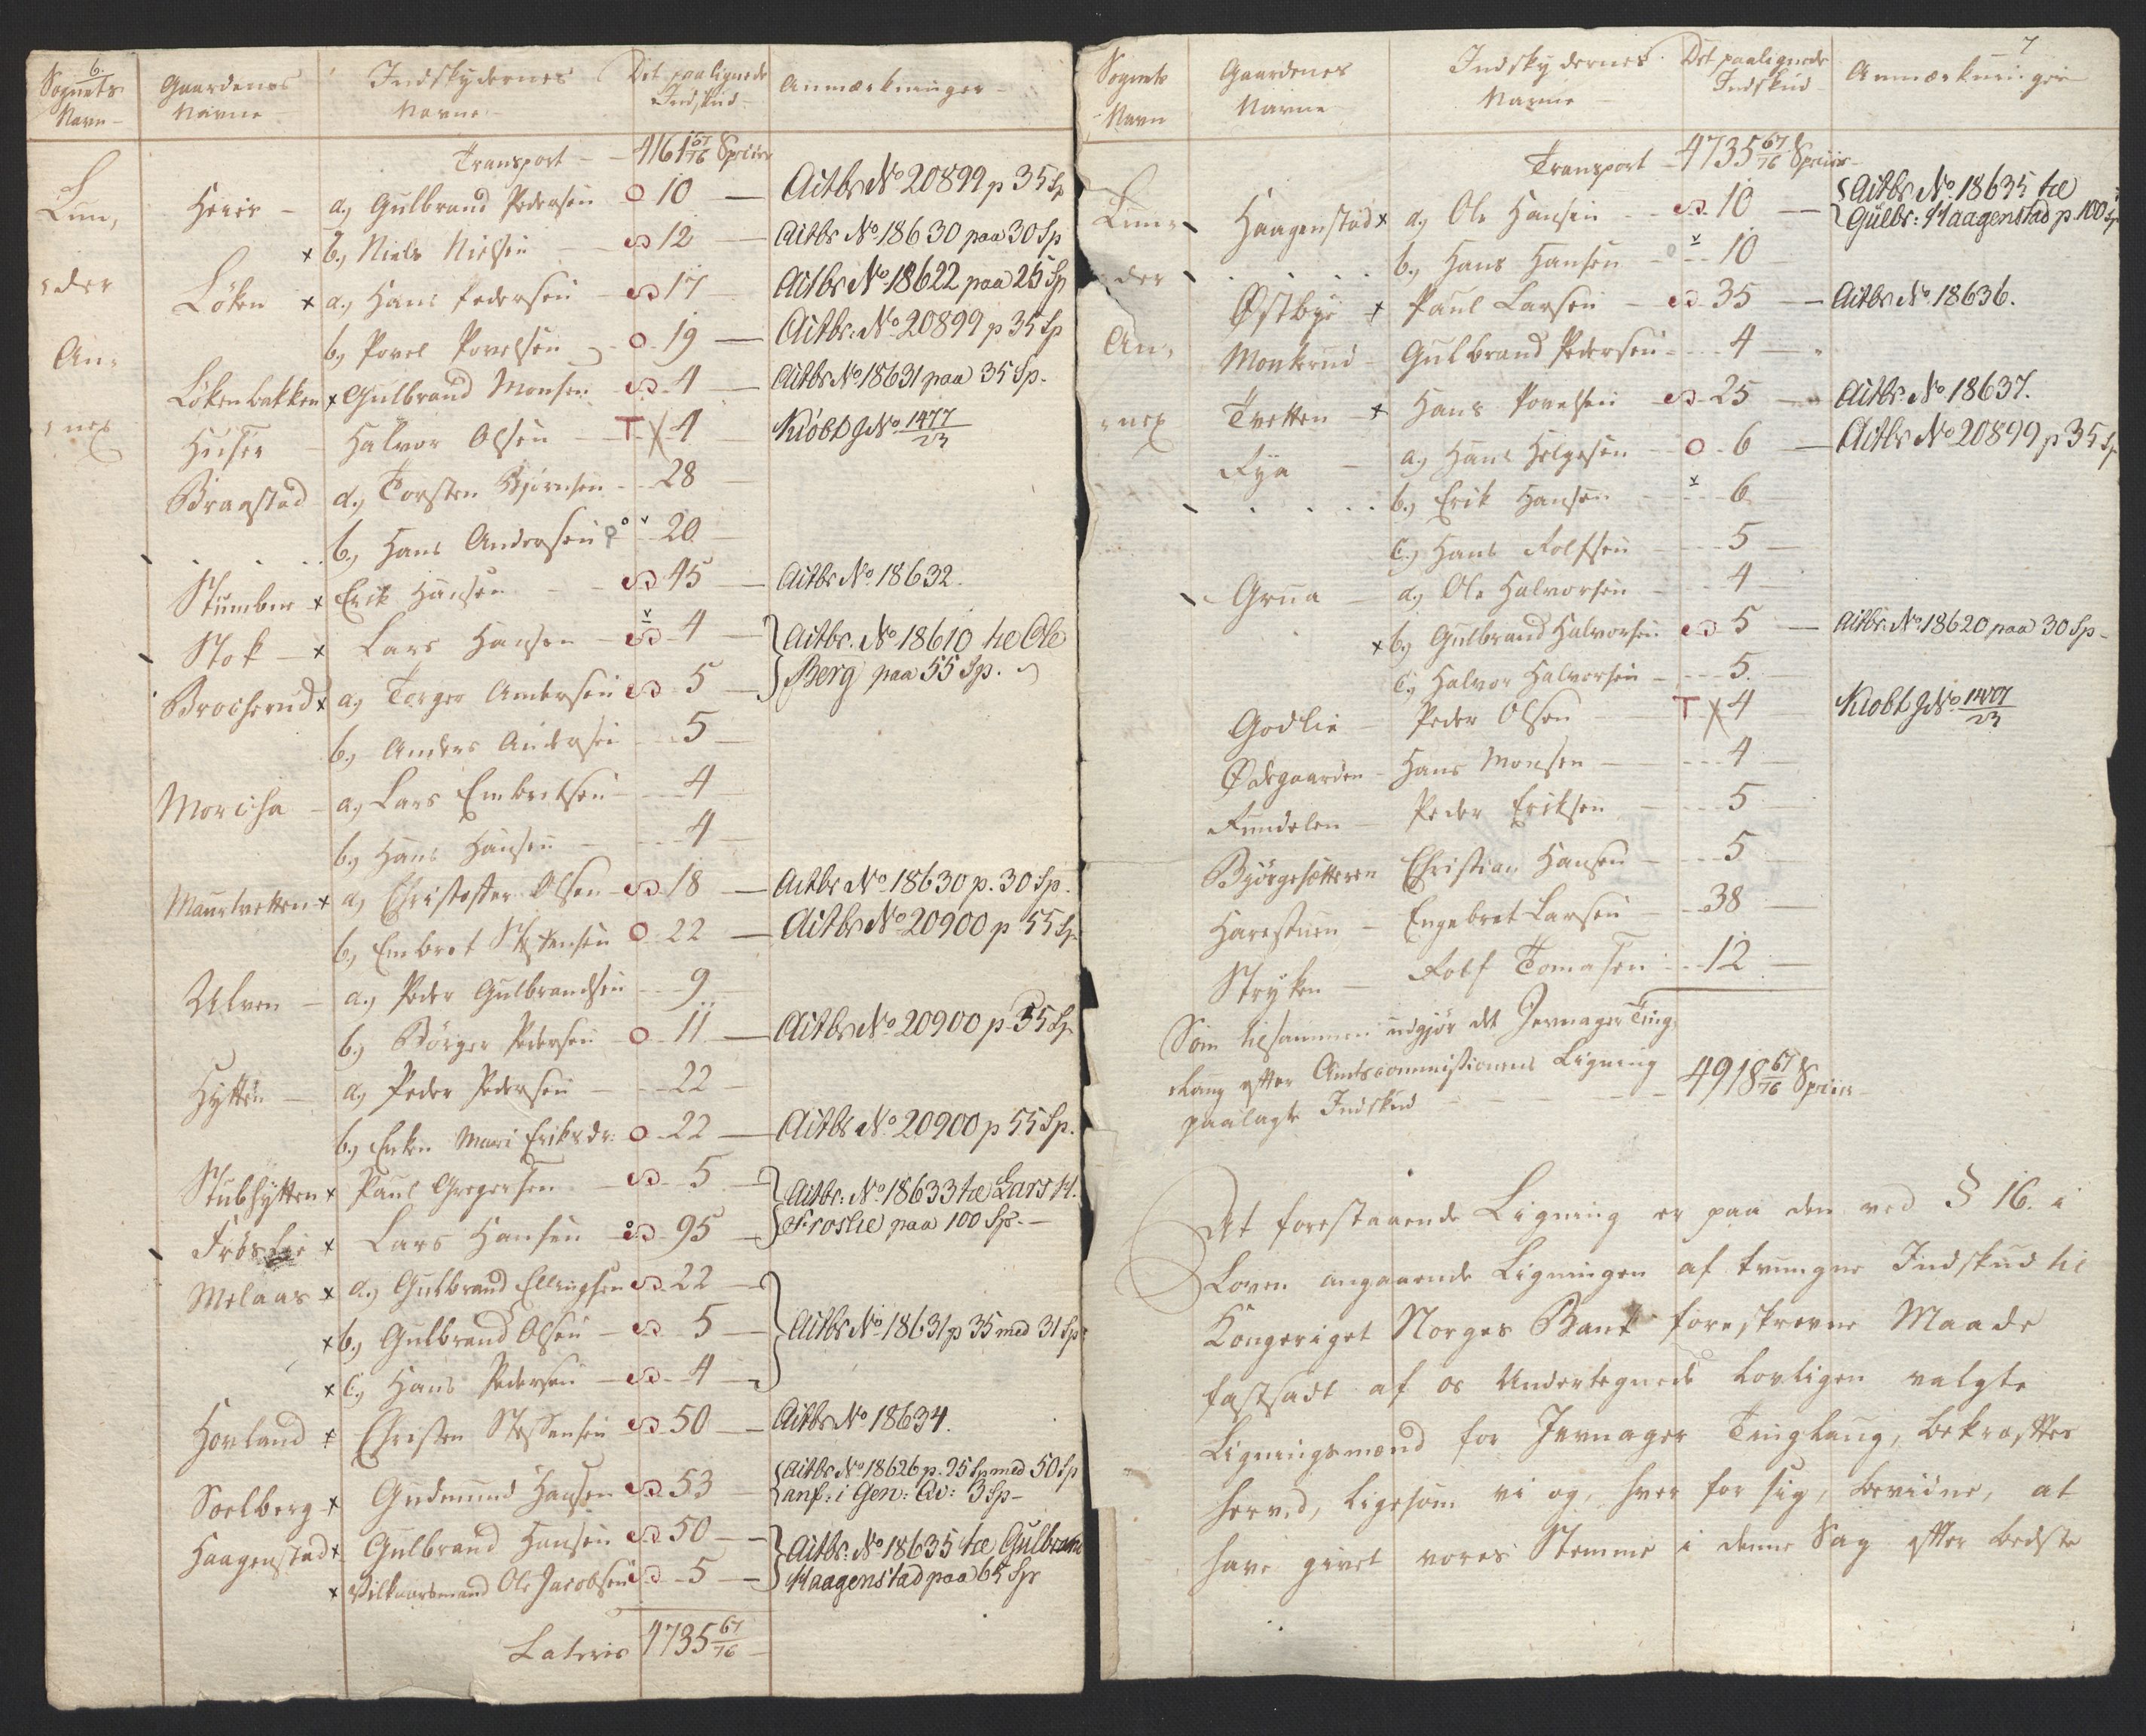 6.
Sognets Navn
Gaardenes Navne
Indskydernes Navne
Det paalignede Indskud
Anmærkninger
Transport 4161 67/76 Specier
Lun,
Heier a.) Gulbrand Pedersen 10 Actbr No 20899 p 35 Sp
b.) Niels Nielsen 12 Actbr No 18630 paa 30 Sp
der
Løken a.) Hans Pedersen 17 Actbr No 18622 paa 25 Sp
b.) Povel Povelsen 19 Actbr: No 20899 p 35 Sp
An,
Løkenbakken Gulbrand Monsen 4 Actbr No 18631 paa 35 Sp.
nex
Huser Halvor Olsen T 4 Kiöbt J No 1477/23
Braastad a.) Torsten Bjørnsen 28
b.) Hans Andersen 20
Stumber Erik Hansen 45 Actbr No 18632.
Stok Lars Hansen 4 Actbr. No 18610 til Ole
Brocherud a.) Torger Andersen 5 Berg paa 55 Sp.
b.) Anders Andersen 5
Morcsha a.) Lars Embretsen 4
b.) Hans Hansen 4
Maurtvetten a.) Christoffer Olsen 18 Actbr No 18630 p. 30 Sp.
b.) Embret Steffensen 22 Actbr No 20900 p 55 Sp
Ulven a.) Peder Gulbrandsen 9
b.) Börger Pedersen 11 Actbr No 20900 p 55 Sp
Hytten a.) Peder Pedersen 22
b.) Enken Mari Eriksdr: 22 Actbr No 20900 p 55 Sp.
Stubhytten Paul Gregersen 5 Actbr: No 18633 til Lars H.
Frøslie Lars Hansen 95 Froslie paa 100 Sp.
Melaas a.) Gulbrand Ellingsen 22
b.) Gulbrand Olsen 5 Actbr No 18631 p 35 med 31 Sp
c.) Hans Pedersen 4
Hovland Christen Steffensen 50 Actbr No 18634.
Soelberg Gudmund Hansen 53 Actbr No 18626 p. 95 Sp med 50 Sp
anf: i Gen: Qv: 3 Sp
Haagenstad Gulbrand Hansen 50 Actbr: No 18635 til Gulbrand
Vilkaarsmand Ole Jacobsen 5 Haagenstad paa 65 Sp
Lateris 4735 67/76
7
Sognets Navn
Gaardenes Navne
Indskydernes Navne
Det paalignede Indskud
Anmærkninger
Transport 4735 67/76 Specier
Lun,
Haagenstad a.) Ole Hansen 10 Actbr No 18635 til
Gulbr: Haagenstad p. 100 Sp
b.) Hans Hansen 10
der
Østbye Paul Larsen 35 Actbr No 18636.
An,
Monkerud Gulbrand Pedersen 4
nex
Tvetten Hans Povelsen 25 Actbr No 18637.
Rya a.) Hans Helgesen 6 Actbr No 20899 p 35 Sp
b.) Erik Hansen 6
c.) Hans Rolfsen 5
Grua a.) Ole Halvorsen 4
b.) Gulbrand Halvorsen 5 Actbr: No 18620 paa 30 Sp
c.) Halvor Halvorsen 5.
Godlie Peder Olsen T 4 Kiobt J No 1477/23
Ødegaarden Hans Monsen 4
Rundelen Peder Eriksen 5
Bjørgesætteren Christian Hansen 5
Harestuen Engebret Larsen 38
Stryken Rolf Tomasen 12
Som tilsammen udgjør det Jevnager Ting,
laug efter Amtscommissionens Ligning
paalagte Indskud 4918 67/76 Specier
Det forestaaende Ligning er paa den ved § 16. i
Loven angaaende Ligningen af tvungne Indskud til
Kongeriget Norges Bank foreskrevne Maade
fastsadt af os Undertegnede lovligen valgte
Ligningsmænd for Jevnager Tinglaug, bekræfter
herved, ligesom vi og, hver for sig, bevidne, at
have givet vores Stemme i denne Sag efter bedste